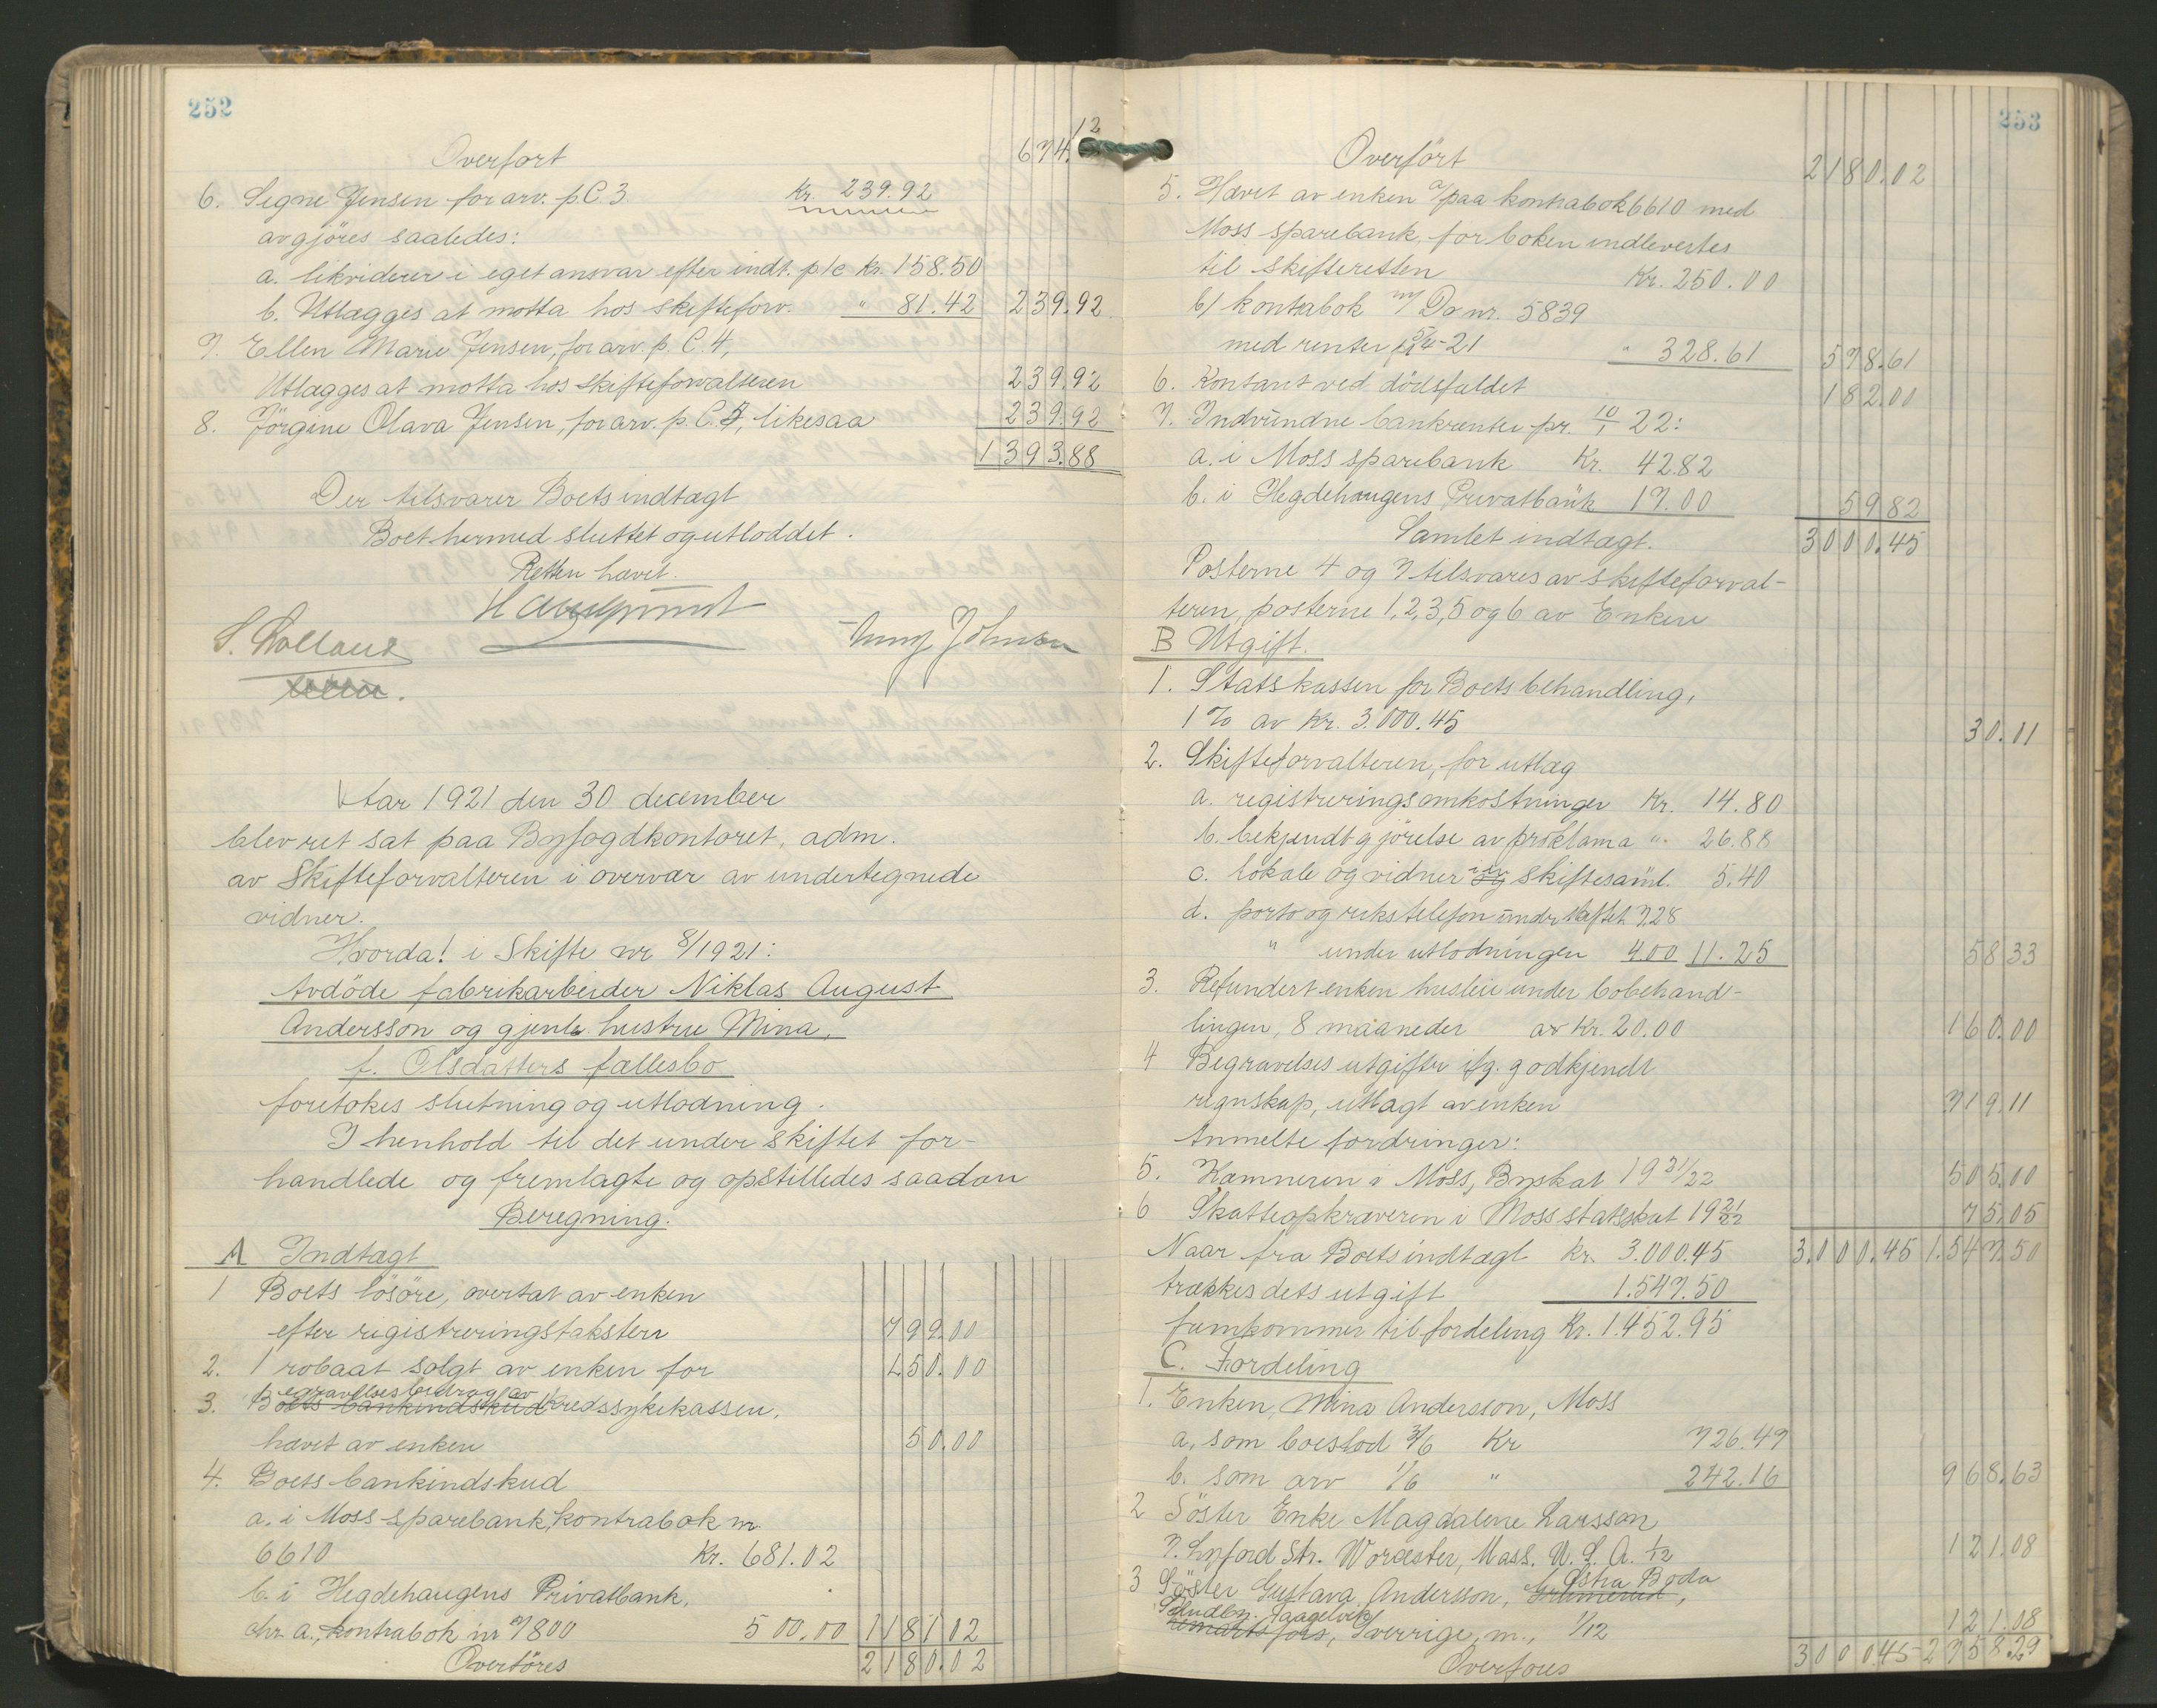 252
Overført 674.12
6. Signe Jensen for arv. p. C. 3 Kr. 239.92
avgjöres saaledes:
a. likviderer i eget ansvar efter indt. p 1c Kr. 158.50
b. Utlægges at motta hos skifteforv. " 81.42 239.92
7. Ellen Marie Jensen, for arv. p. C. 4,
Utlægges at motta hos skifteforvalteren 239.92
8. Jörgine Olava Jensen, for arv. p. C. 5, likesaa 239.92
1393.88
Der tilsvarer Boets indtægt
Boet hermed sluttet og utloddet.
Retten hævet.
S. Lolland Johnsen
Aar 1921 den 30 december
blev ret sat paa Byfogdkontoret, adm.
av Skifteforvalteren i overvær av undertegnede
vidner.
Hvorda! i Skifte nr 8/1921:
Avdöde fabrikarbeider Niklas August
Andersson og gjenl. hustru Mina,
f. Olsdatters fællesbo
foretokes slutning og utlodning.
I henhold til det under skiftet for-
handlede og fremlagte og opstilledes saadan
Beregning.
A Indtægt
1 Boets lösöre, overtat av enken
efter registreringstaksten 799.00
2. 1 robaat solgt av enken for 150.00
3. Begravelsesbidrag av Kredssykekassen,
hævet av enken 50.00
4. Boets bankindskud
a. i Moss sparebank, kontrabok nr
6610 Kr. 681.02
b. i Hegdehaugens Privatbank,
Chr. a., kontrabok nr 7800 500.00 1181.02
Overföres 2180.02
253
Overfört 2180.02
5. Hævet av enken a/ paa kontrabok 6610 med
Moss sparebank, før boken indlevertes
til skifteretten Kr. 250.00
b/ kontrabok m/ Do nr. 5839
med renter 5/4-21 " 328.61 578.61
6. Kontant ved dödsfaldet 182.00
7. Indvundne bankrenter pr. 10/1 22:
a. i Moss sparebank Kr. 42.82
b. i Hegdehaugens Privatbank 17.00 59.82
Samlet indtægt. 3000.45
Posterne 4 og 7 tilsvares av skifteforval-
teren, posterne 1, 2, 3, 5 og 6 av Enken
B Utgift.
1. Statskassen for Boets behandling,
1 % av Kr. 3.000.45 30.11
2. Skifteforvalteren, for utlæg
a. registreringsomkostninger Kr. 14.80
b. bekjendtgjörelse av proklama " 26.88
c. lokale og vidner skiftesaml. 5.40
d. porto og rikstelefon under skiftet 7.28
" under utlodningen 4.00 11.25 58.33
3. Refundert enken husleie under bobehand-
lingen, 8 maaneder av Kr. 20.00 160.00
4 Begravelses utgifter ifg. godkjendt
regnskap, utlagt av enken 719.11
Anmelte fordringer:
5. Kæmneren i Moss, Byskat 1921/22 505.00
6 Skatteopkræveren i Moss statsskat 1921/22 75.05
Naar fra Boets indtægt Kr. 3.000.45 3.000.45 1.547.50
trækkes dets utgift 1.547.50
fremkommer til fordeling Kr. 1.452.95
C. Fordeling
1. Enken, Mina Andersson, Moss
a. som boeslod 3/6 Kr 726.47
b. som arv 1/6 " 242.16 968.63
2 Söster Enke Magdalene Larsson
7. Lyford Str. Worcester, Mass. U. S. A. 1/12 121.08
3 Söster Gustava Andersson, Östra Boda
Taagelvik, Sverrige, m., 1/12 121.08
Overføres 3000.45 2758.29